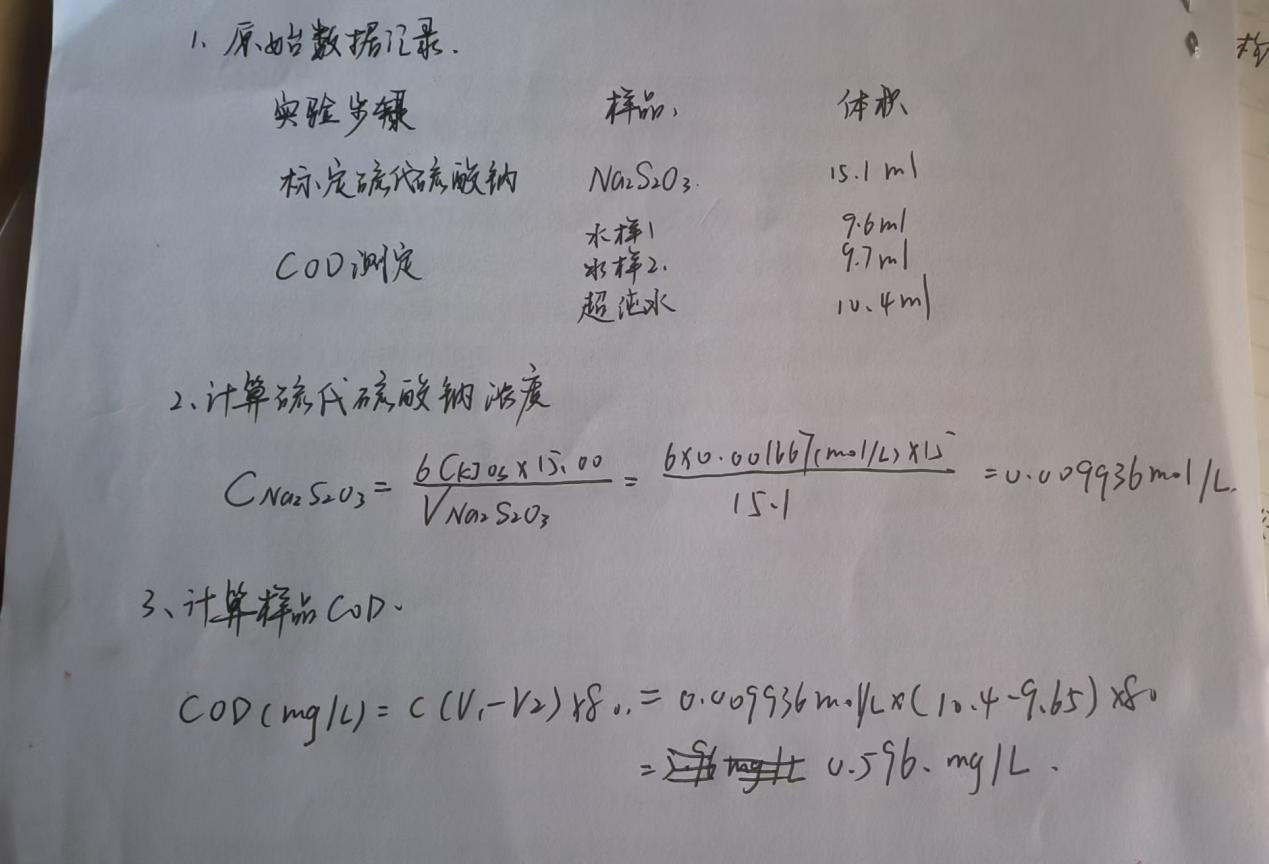 1、原始数据记录.
实验步骤 样品, 体积
标定硫代硫酸钠 Na2S2O3. 15.1 ml
水样1 9.6ml
COD测定 水样2. 9.7ml
超纯水 10.4ml
2、计算硫代硫酸钠浓度
CNa2S2O3 = 6CKJO3×15.00 / VNa2S2O3 = 6×0.001667(mol/L)×15 / 15.1 = 0.009936mol/L.
3、计算样品COD.
COD(mg/L) = C(V1-V2)×80. = 0.009936mol/L×(10.4-9.65)×80
= 0.596. mg/L.